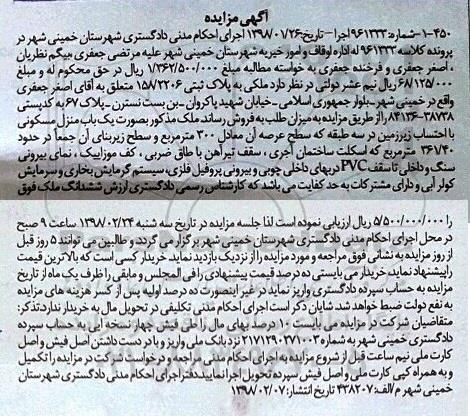 آگهی مزایده
۱-۴۵۰- شماره: ۹۶۱۳۳۳اجرا - تاریخ:۱۳۹۸/۰۱/۲۶ اجرای احکام مدنی دادگستری شهرستان خمینی شهر در
پرونده کلاسه ۹۶۱۳۳۳ له اداره اوقاف و امور خیریه شهرستان خمینی شهر علیه مرتضی جعفری بیگم نظریان
، اصغر جعفری و فرخنده جعفری به خواسته مطالبه مبلغ ۱/۳۶۲/۵۰۰/۰۰۰ ریال در حق محکوم له و مبلغ
۶۸/۱۲۵/۰۰۰ ریال نیم عشر دولتی در نظر دارد ملکی به پلاک ثبتی ۱۵۸/۲۲۰۶ متعلق به آقای اصغر جعفری
واقع در خمینی شهر-بلوار جمهوری اسلامی -خیابان شهید پاکروان -بن بست نسترن -پلاک ۶۷ به کدپستی
۸۴۱۳۶-۳۸۷۳۸ را از طریق مزایده به میزان طلب به فروش رساند. ملک مذکور بصورت یک باب منزل مسکونی
با احتساب زیرزمین در سه طبقه که سطح عرصه آن معادل ۳۰۰ مترمربع و سطح زیربنای آن جمعا در حدود
۳۶۱/۴۰ مترمربع که اسکلت ساختمان آجری ، سقف تیرآهن با طاق ضربی ، کف موزاییک ، نمای بیرونی
سنگ و داخلی تا سقف PVC دربهای داخلی چوبی و بیرونی پروفیل فلزی، سیستم گرمایش بخاری و سرمایش
کولر آبی و دارای مشترکات به حد کفایت می باشد که کارشناس رسمی دادگستری ارزش ششدانگ ملک فوق
را ۵/۵۰۰/۰۰۰/۰۰۰ ریال ارزیابی نموده است لذا جلسه مزایده در تاریخ سه شنبه ۱۳۹۸/۰۲/۲۴ ساعت ۹ صبح
در محل اجرای احکام مدنی دادگستری شهرستان خمینی شهر برگزار می گردد و طالبین می توانند ۵ روز قبل
از روز مزایده به نشانی فوق مراجعه و مورد مزایده را از نزدیک بازدید نماید. خریدار کسی است که بالاترین قیمت
را پیشنهاد نماید، خریدار می بایستی ده درصد قیمت پیشنهادی را فی المجلس و مابقی را ظرف یک ماه از تاریخ
مزایده به حساب سپرده دادگستری واریز نماید در غیر اینصورت ده درصد اولیه پس از کسر هزینه های مزایده
به نفع دولت ضبط خواهد شد. شایان ذکر است اجرای احکام مدنی تکلیفی در تحویل مال به خریدار ندارد.تذکر:
متقاضیان شرکت در مزایده می بایست ۱۰ درصد بهای مال را طی فیش چهار نسخه ایی به حساب سپرده
دادگستری خمینی شهر به شماره ۲۱۷۱۲۹۰۲۷۱۰۰۳ نزد بانک ملی واریز و با در دست داشتن اصل فیش و اصل
کارت ملی نیم ساعت قبل از شروع مزایده به اجرای احکام مدنی مراجعه و درخواست شرکت در مزایده را تکمیل
و به همراه کپی کارت ملی و اصل فیش سپرده تحویل اجرا نمایید.دفتر اجرای احکام مدنی دادگستری شهرستان
خمینی شهر م/الف:۴۳۸۲۰۷ تاریخ انتشار: ۱۳۹۸/۰۲/۰۷